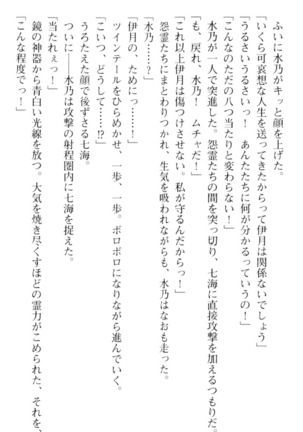 ふいに水乃がキっと顔を上げた。
「いくら可哀想な人生を送ってきたからって伊月は関係ないでしょう」
「うるさいうるさいっ! あんたたちに何が分かるっていうの!」
「こんなのただの八つ当たりと変わらない!」
水乃が一人で突進した。怨霊たちの間を突っ切り、七海に直接攻撃を加えるつもりだ。
「も、戻れ、水乃! ムチャだ!」
「これ以上伊月は傷つけさせない。私が守るんだからっ!」
怨霊たちにまとわりつかれ、生気を吸われながらも、水乃はなおも走った。
「水乃……?」
「伊月の、ためにっ……!」
ツインテールをひらめかせ、一歩、一歩。ボロボロになりながら進んでいく。
「こいつ、どうして……!?」
うろたえた顔で後ずさる七海。
ついに——水乃は攻撃の射程圏内に七海を捉えた。
「当たれぇっ!」
鏡の神器から青白い光線を放つ。大気を焼き尽くすほどの霊力がこめられた、それを、
「こんな程度でっ!」